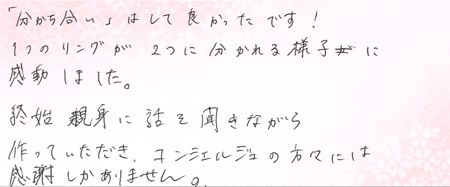 「分かち合い」はして良かったです!
1つのリングが 2つに分かれる様子に
感動しました。
終始 親身に話を聞きながら
作っていただき、コンシェルジュの方々には
感謝しかありません。